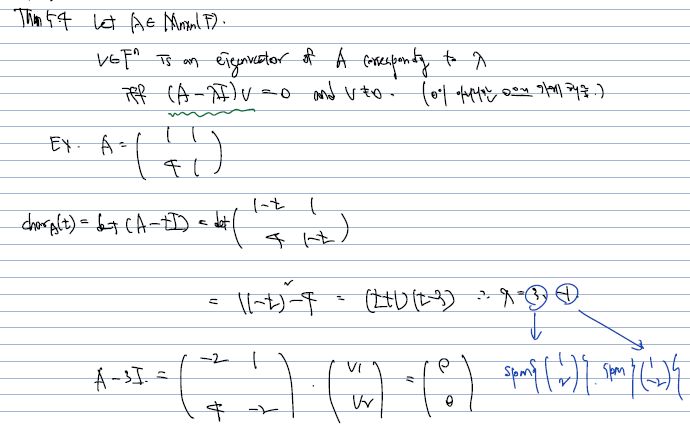 Thm 5.4 Let A ∈ Mnxn(F).
v∈Fⁿ is an eigenvector of A corresponding to λ
iff (A-λI)v = 0 and v≠0.
Ex. A = ( 1 1
4 1 )
char_A(t) = det (A-tI) = det ( 1-t 1
4 1-t )
= (1-t)²-4 = (t+1)(t-3) ∴ λ = 3, -1
A-3I = ( -2 1
4 -2 ) · ( v1
v2 ) = ( 0
0 ) span{ ( 1
2 ) }. span { ( 1
-2 ) }